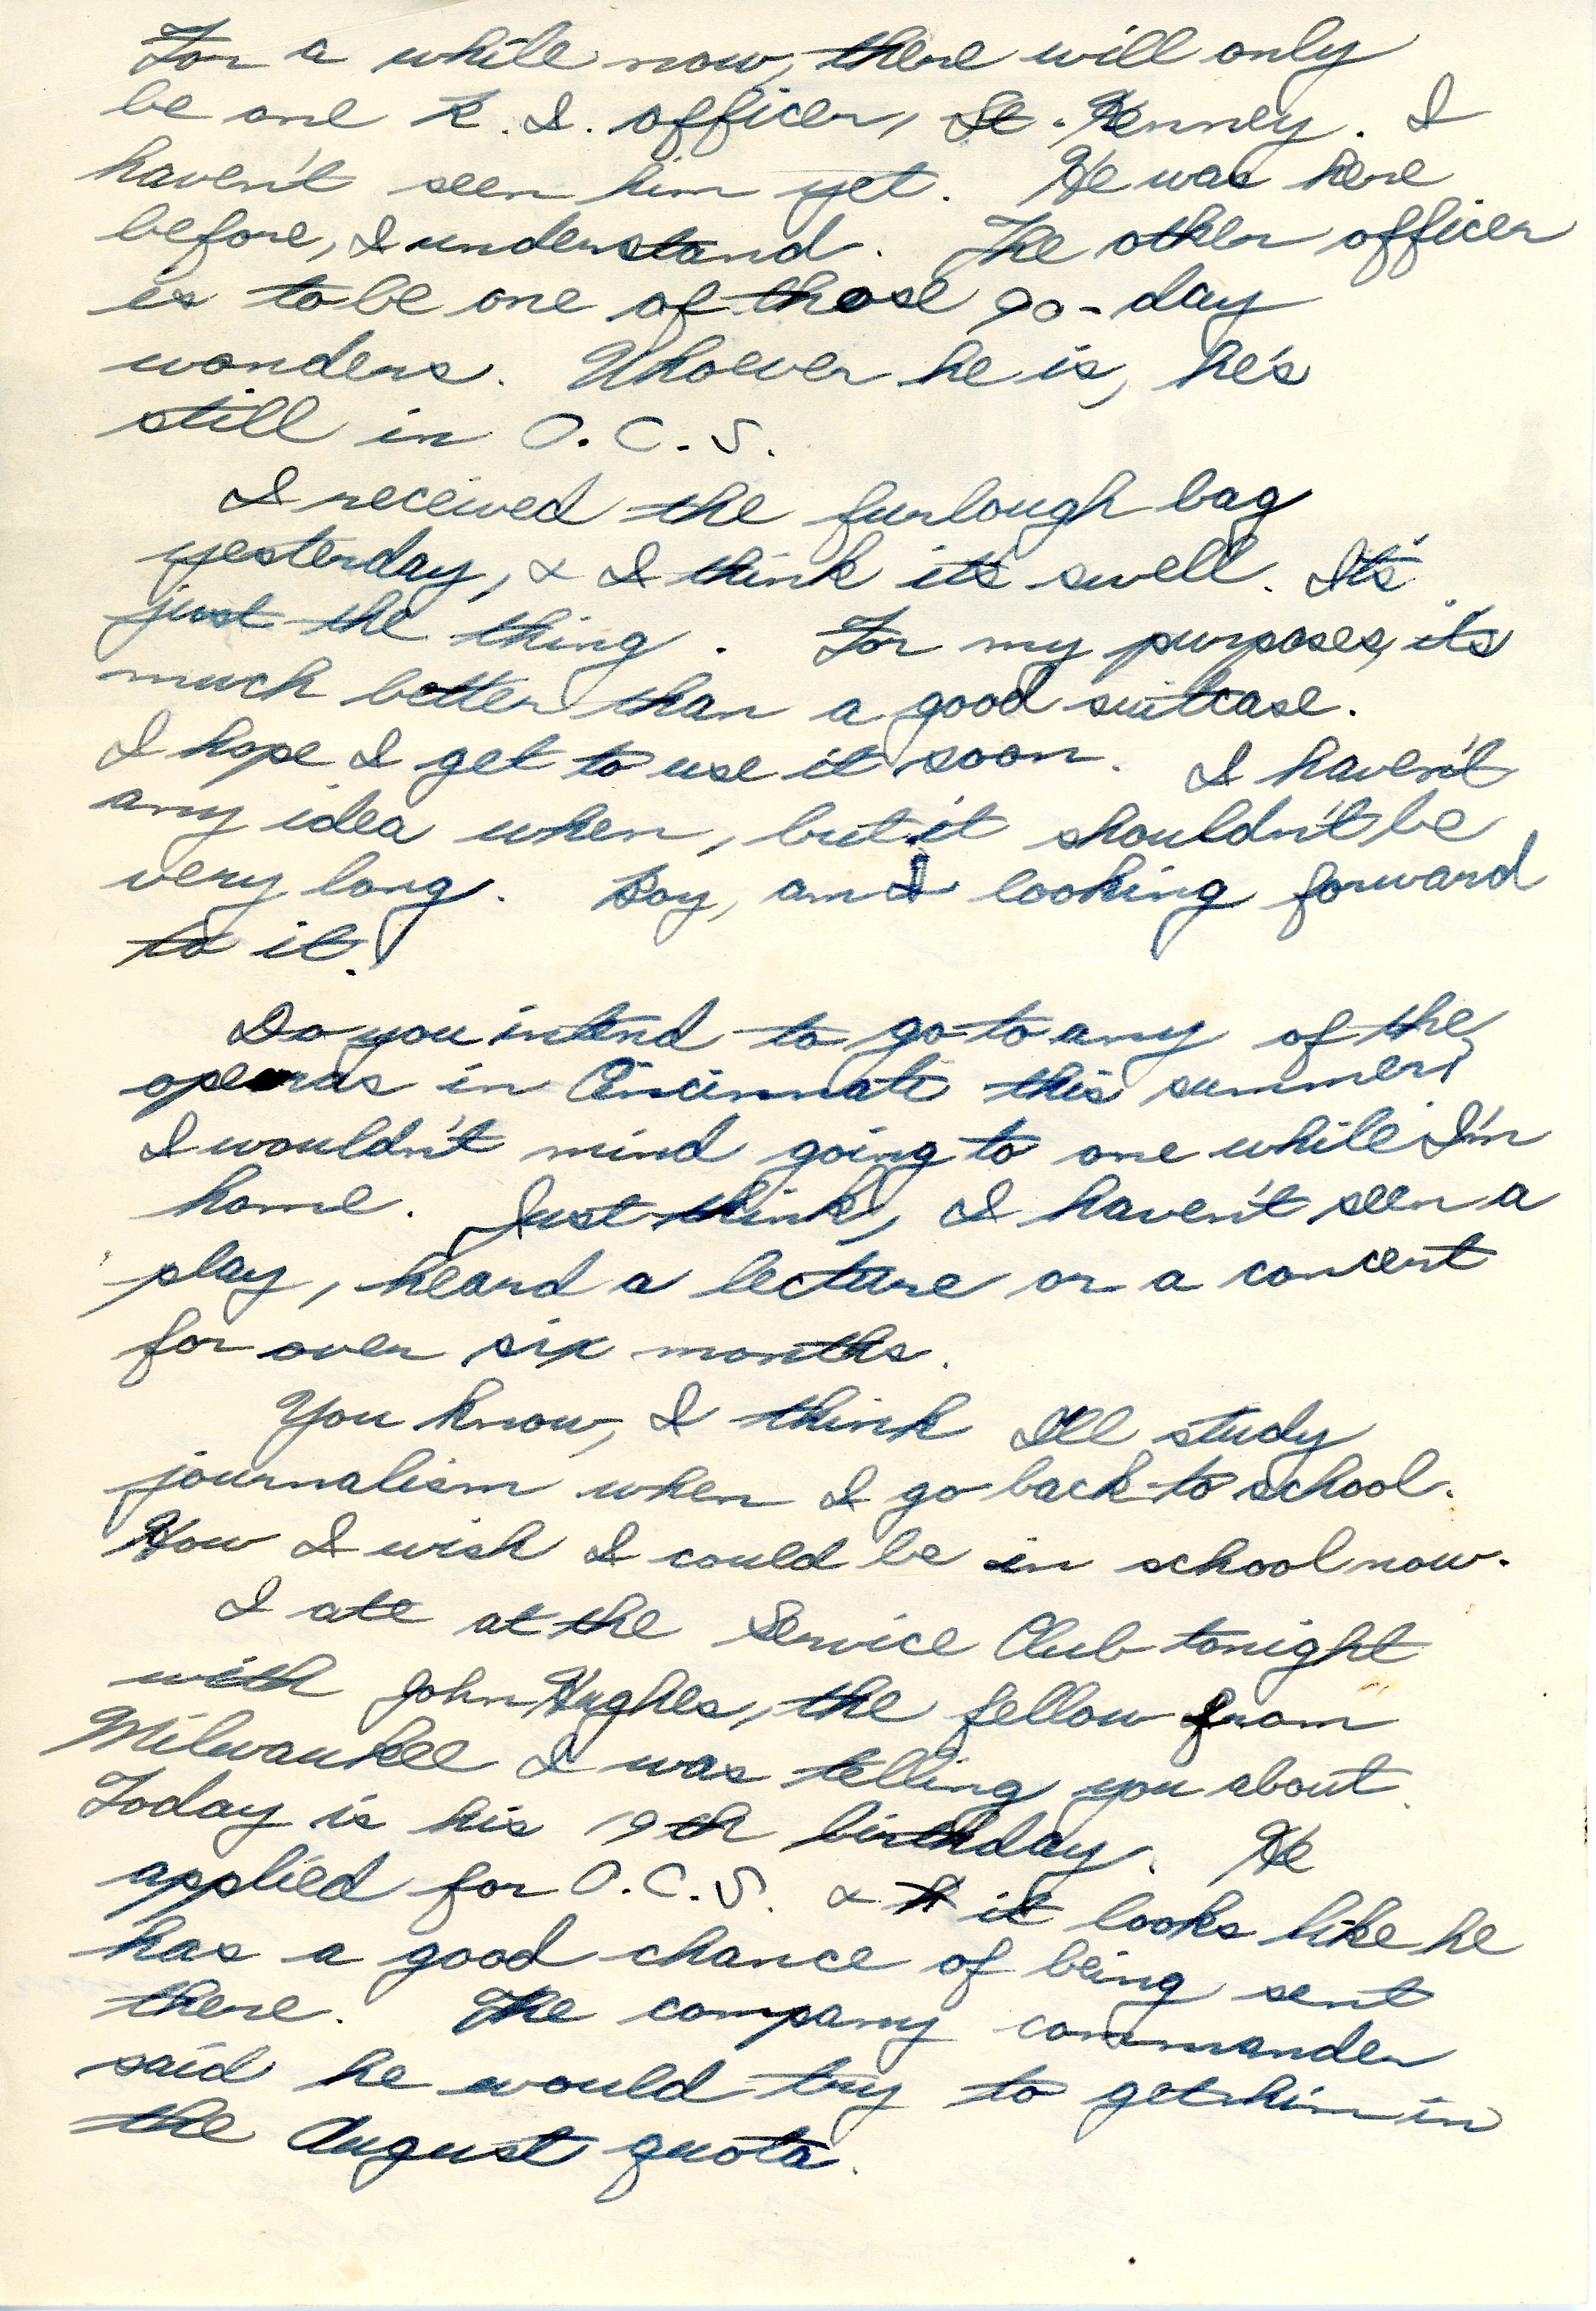 For a while now, there will only
be one R.I. officer, Lt. Kenney. I
haven't seen him yet. He was here
before, I understand. The other officer
is to be one of those 90-day
wonders. Whoever he is, he's
still in O.C.S.
I received the furlough bag
yesterday, & I think it's swell. It's
just the thing. For my purposes, it's
much better than a good suitcase.
I hope I get to use it soon. I haven't
any idea when, but it shouldn't be
very long. Boy, am I looking forward
to it!
Do you intend to go to any of the
operas in Cincinnati this summer?
I wouldn't mind going to one while I'm
home. Just think, I haven't seen a
play, heard a lecture or a concert
for over six months.
You know, I think I'll study
journalism when I go back to school.
How I wish I could be in school now.
I ate at the Service Club tonight
with John Hughes, the fellow from
Milwaukee I was telling you about.
Today is his 19th birthday. He
applied for O.C.S. & it looks like he
has a good chance of being sent
there. The company commander
said he would try to get him in
the August quota.